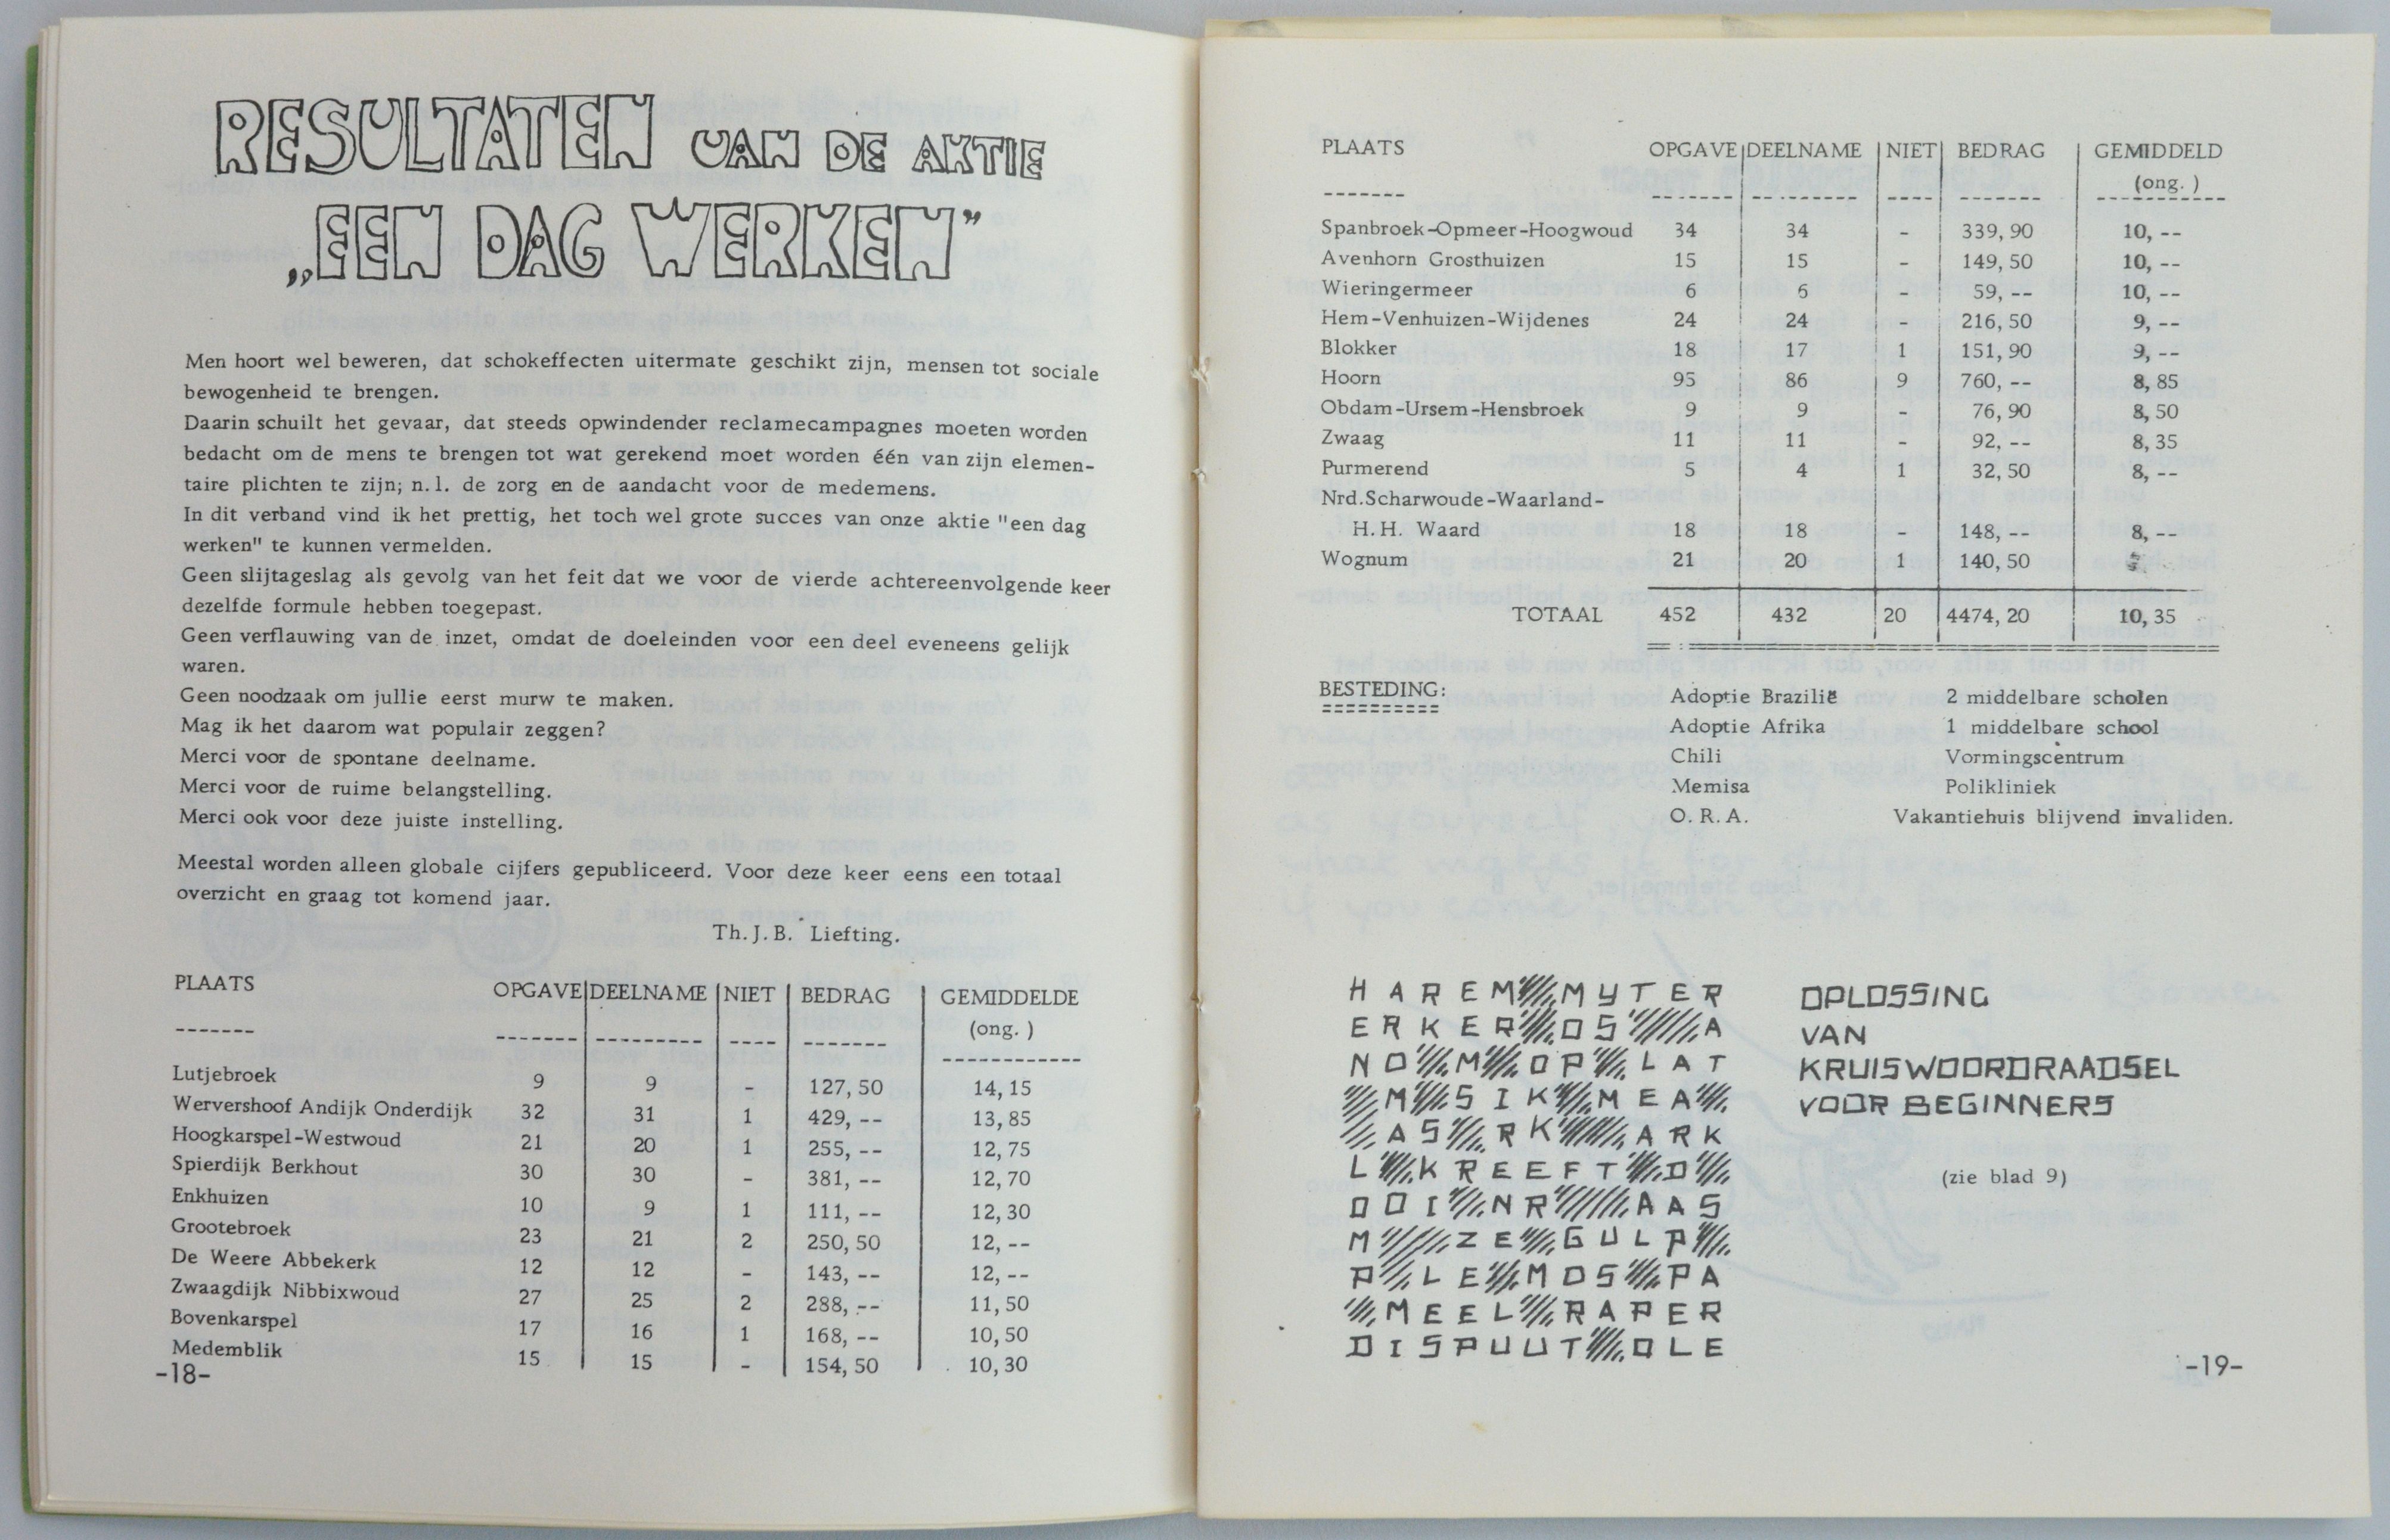 RESULTATEN VAN DE AKTIE
„EEN DAG WERKEN”
Men hoort wel beweren, dat schokeffecten uitermate geschikt zijn, mensen tot sociale
bewogenheid te brengen.
Daarin schuilt het gevaar, dat steeds opwindender reclamecampagnes moeten worden
bedacht om de mens te brengen tot wat gerekend moet worden één van zijn elemen-
taire plichten te zijn; n.l. de zorg en de aandacht voor de medemens.
In dit verband vind ik het prettig, het toch wel grote succes van onze aktie "een dag
werken" te kunnen vermelden.
Geen slijtageslag als gevolg van het feit dat we voor de vierde achtereenvolgende keer
dezelfde formule hebben toegepast.
Geen verflauwing van de inzet, omdat de doeleinden voor een deel eveneens gelijk
waren.
Geen noodzaak om jullie eerst murw te maken.
Mag ik het daarom wat populair zeggen?
Merci voor de spontane deelname.
Merci voor de ruime belangstelling.
Merci ook voor deze juiste instelling.
Meestal worden alleen globale cijfers gepubliceerd. Voor deze keer eens een totaal
overzicht en graag tot komend jaar.
Th. J. B. Liefting.
PLAATS OPGAVE DEELNAME NIET BEDRAG GEMIDDELDE
(ong. )
Lutjebroek 9 9 - 127,50 14,15
Wervershoof Andijk Onderdijk 32 31 1 429, -- 13,85
Hoogkarspel-Westwoud 21 20 1 255, -- 12,75
Spierdijk Berkhout 30 30 - 381, -- 12,70
Enkhuizen 10 9 1 111, -- 12,30
Grootebroek 23 21 2 250,50 12, --
De Weere Abbekerk 12 12 - 143, -- 12, --
Zwaagdijk Nibbixwoud 27 25 2 288, -- 11,50
Bovenkarspel 17 16 1 168, -- 10,50
Medemblik 15 15 - 154,50 10,30
-18-
PLAATS OPGAVE DEELNAME NIET BEDRAG GEMIDDELD
(ong. )
Spanbroek-Opmeer-Hoogwoud 34 34 - 339,90 10, --
Avenhorn Grosthuizen 15 15 - 149,50 10, --
Wieringermeer 6 6 - 59, -- 10, --
Hem-Venhuizen-Wijdenes 24 24 - 216,50 9, --
Blokker 18 17 1 151,90 9, --
Hoorn 95 86 9 760, -- 8,85
Obdam-Ursem-Hensbroek 9 9 - 76,90 8,50
Zwaag 11 11 - 92, -- 8,35
Purmerend 5 4 1 32,50 8, --
Nrd.Scharwoude-Waarland-
H.H. Waard 18 18 - 148, -- 8, --
Wognum 21 20 1 140,50
TOTAAL 452 432 20 4474,20 10,35
BESTEDING: Adoptie Brazilië 2 middelbare scholen
Adoptie Afrika 1 middelbare school
Chili Vormingscentrum
Memisa Polikliniek
O.R.A. Vakantiehuis blijvend invaliden.
HAREM MYTER
ERKER OS A
NO M OP LAT
M SIK MEA
AS RK ARK
L KREEFT D
OOI NR AAS
M ZE GULP
P LE MOS PA
MEEL RAPER
DISPUUT OLE
OPLOSSING
VAN
KRUISWOORDRAADSEL
VOOR BEGINNERS
(zie blad 9)
-19-